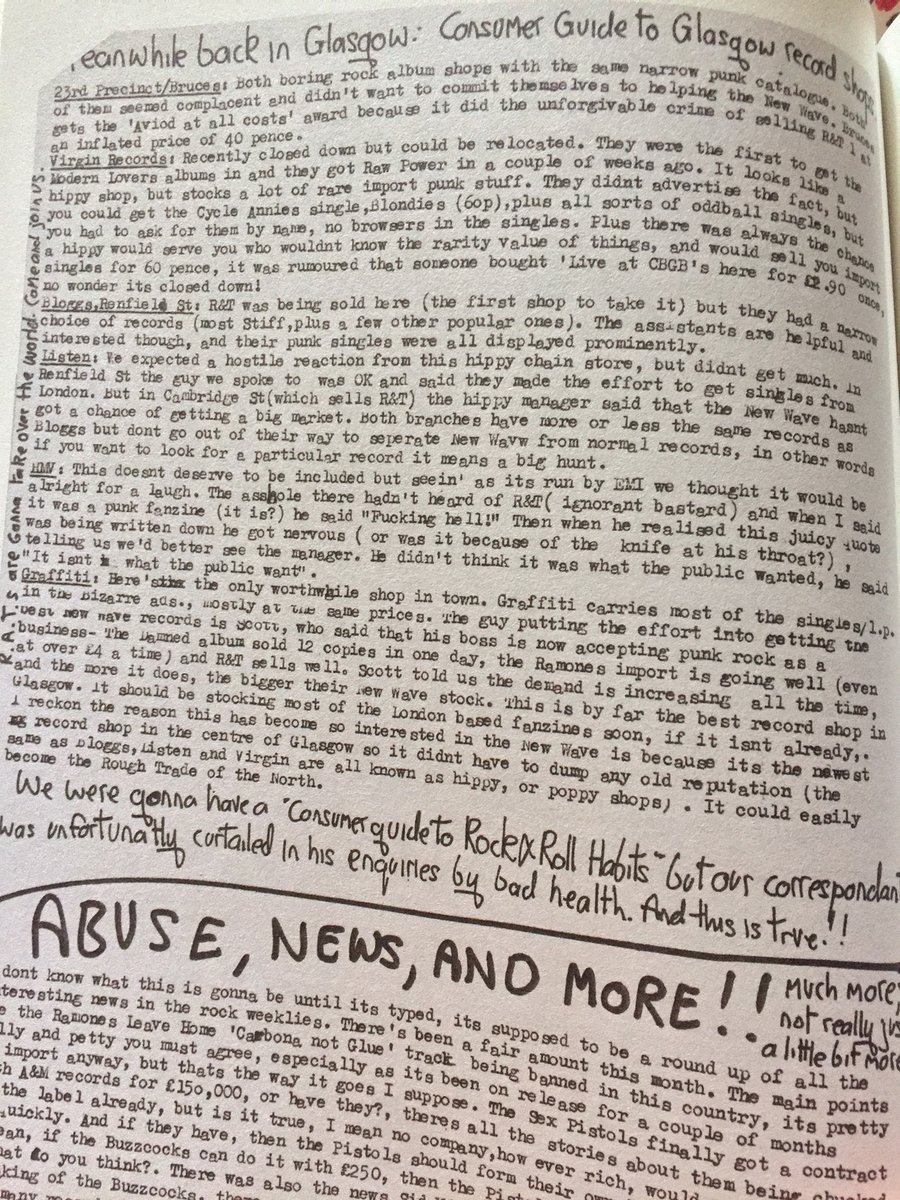 eanwhile back in Glasgow: Consumer Guide to Glasgow record shops
23rd Precinct/Bruces: Both boring rock album shops with the same narrow punk catalogue. Both
of them seemed complacent and didn't want to commit themselves to helping the New Wave. Bruces
gets the 'Aviod at all costs' award because it did the unforgivable crime of selling R&T 1 at
an inflated price of 40 pence.
Virgin Records: Recently closed down but could be relocated. They were the first to get the
Modern Lovers albums in and they got Raw Power in a couple of weeks ago. It looks like a
hippy shop, but stocks a lot of rare import punk stuff. They didnt advertise the fact, but
you could get the Cycle Annies single,Blondies (60p),plus all sorts of oddball singles, but
you had to ask for them by name, no browsers in the singles. Plus there was always the chance
a hippy would serve you who wouldnt know the rarity value of things, and would sell you import
singles for 60 pence, it was rumoured that someone bought 'Live at CBGB's here for £2.90 once,
no wonder its closed down!
Bloggs,Renfield St: R&T was being sold here (the first shop to take it) but they had a narrow
choice of records (most Stiff,plus a few other popular ones). The assistants are helpful and
interested though, and their punk singles were all displayed prominently.
Listen: We expected a hostile reaction from this hippy chain store, but didnt get much. In
Renfield St the guy we spoke to was OK and said they made the effort to get singles from
London. But in Cambridge St(which sells R&T) the hippy manager said that the New Wave hasnt
got a chance of getting a big market. Both branches have more or less the same records as
Bloggs but dont go out of their way to seperate New Wavw from normal records, in other words
if you want to look for a particular record it means a big hunt.
HMV: This doesnt deserve to be included but seein' as its run by EMI we thought it would be
alright for a laugh. The asshole there hadn't heard of R&T( ignorant bastard) and when I said
it was a punk fanzine (it is?) he said "Fucking hell!" Then when he realised this juicy quote
was being written down he got nervous ( or was it because of the knife at his throat?) ,
telling us we'd better see the manager. He didn't think it was what the public wanted, he said
"It isnt what the public want".
Graffiti: Here's the only worthwhile shop in town. Graffiti carries most of the singles/l.p.
in the Bizarre ads., mostly at the same prices. The guy putting the effort into getting the
best new wave records is Scott, who said that his boss is now accepting punk rock as a
business- The Damned album sold 12 copies in one day, the Ramones import is going well (even
at over £4 a time) and R&T sells well. Scott told us the demand is increasing all the time,
and the more it does, the bigger their New Wave stock. This is by far the best record shop in
Glasgow. It should be stocking most of the London based fanzines soon, if it isnt already,.
I reckon the reason this has become so interested in the New Wave is because its the newest
record shop in the centre of Glasgow so it didnt have to dump any old reputation (the
same as Bloggs,Listen and Virgin are all known as hippy, or poppy shops) . It could easily
become the Rough Trade of the North.
R.A.T.S are Gonna take over the world. Come and join us.
We were gonna have a "Consumer guide to Rock & Roll Habits" but our correspondant
was unfortunatly curtailed in his enquiries by bad health. And this is true!!
ABUSE, NEWS, AND MORE!!
Much more,
not really jus
a little bit more
dont know what this is gonna be until its typed, its supposed to be a round up of all the
teresting news in the rock weeklies. There's been a fair amount this month. The main points
e the Ramones Leave Home 'Carbona not Glue' track being banned in this country, its pretty
lly and petty you must agree, especially as its been on release for a couple of months
import anyway, but thats the way it goes I suppose. The Sex Pistols finally got a contract
h A&M records for £150,000, or have they?, theres all the stories about them being
the label already, but is it true, I mean no company,how ever rich, would
uickly. And if they have, then the Pistols should form their own
ean, if the Buzzcocks can do it with £250, then the
at do you think?. There was also the news
king of the Buzzcocks,